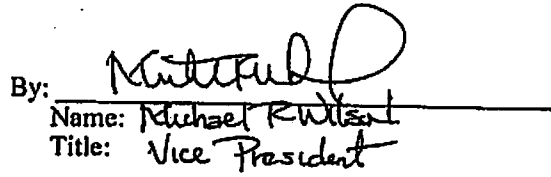 By:
Name: Michael R Wilson
Title: Vice President